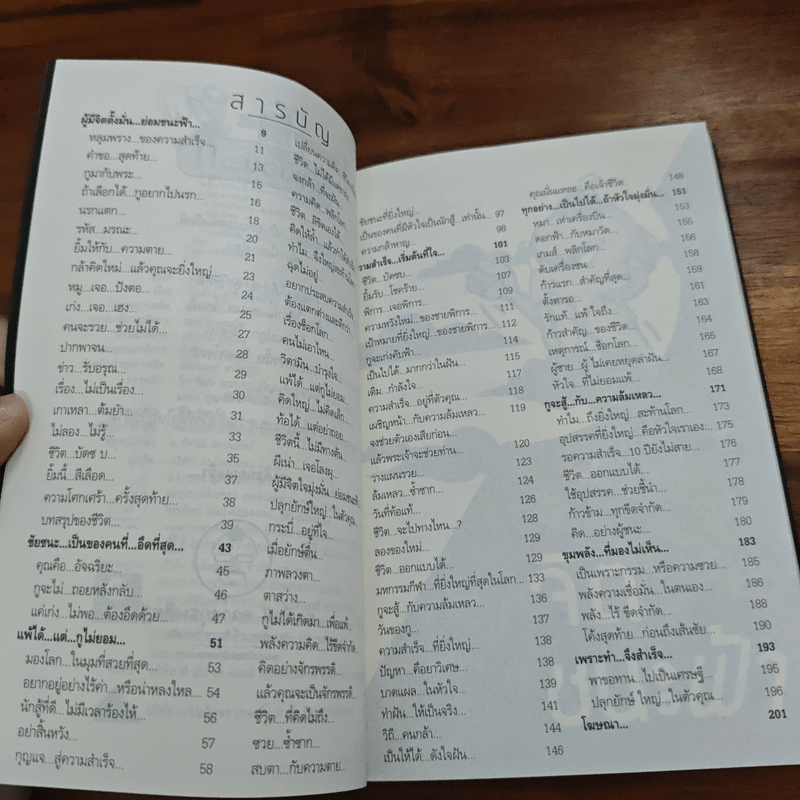 สารบัญ
ผู้มีจิตตั้งมั่น...ย่อมชนะฟ้า... 9
หลุมพราง...ของความสำเร็จ... 11
คำขอ...สุดท้าย... 13
กูมากับพระ... 15
ถ้าเลือกได้...กูอยากไปนรก... 16
นรกแตก... 18
รหัส...มรณะ... 20
ยิ้มให้กับ...ความตาย... 21
กล้าคิดใหม่...แล้วคุณจะยิ่งใหญ่... 23
หมู...เจอ...ปังตอ... 24
เก่ง...เจอ...เฮง... 25
คนจะรวย...ช่วยไม่ได้... 27
ปากพาจน... 28
ข่าว...รับอรุณ... 29
เรื่อง...ไม่เป็นเรื่อง... 30
เกาเหลา...ต้มยำ... 31
ไม่ลอง...ไม่รู้... 33
ชีวิต...บัดซ บ... 35
ยิ้มนี้...สีเลือด... 37
ความโศกเศร้า...ครั้งสุดท้าย... 38
บทสรุปของชีวิต... 39
ชัยชนะ...เป็นของคนที่...อึดที่สุด... 43
คุณคือ...อัจฉริยะ... 45
กูจะไม่...ถอยหลังกลับ... 46
แค่เก่ง...ไม่พอ...ต้องอึดด้วย... 47
แพ้ได้...แต่...กูไม่ยอม... 51
มองโลก...ในมุมที่สวยที่สุด... 53
อยากอยู่อย่างไร้ค่า...หรือน่าหลงใหล... 54
นักสู้ที่ดี...ไม่มีเวลาร้องไห้... 56
อย่าสิ้นหวัง... 57
กุญแจ...สู่ความสำเร็จ... 58
เปลี่ยนความคิด...
ชีวิต...ไม่ได้มี
จงกล้า...ที่จะฝัน
ความคิด...พลิกโลก
ชีวิต...ลิขิตเองได้
คิดให้ล้ำ...แล้วทำให้
ทำไม...จึงใหญ่
ฉุดไม่อยู่
อยากประสบความสำเร็จ
ต้องแตกต่างและดีกว่า
เรื่องช็อกโลก...
คนไม่เอาไหน...
วิตามิน...บำรุงใจ...
แพ้ได้...แต่กูไม่ยอม
คิดใหญ่...ไม่คิดเล็ก
ท้อได้...แต่อย่าถอย
ชีวิตนี้...ไม่มีทางตัน
ผีเน่า...เจอโลงผุ
ผู้มีจิตใจมุ่งมั่น...ย่อมชนะ
ปลุกยักษ์ใหญ่...ในตัวคุณ
กระบี่...อยู่ที่ใจ
เมื่อยักษ์ตื่น...
ภาพลวงตา...
ตาสว่าง...
กูไม่ได้เกิดมา...เพื่อแพ้...
พลังความคิด...ไร้ขีดจำกัด...
คิดอย่างจักรพรรดิ...
แล้วคุณจะเป็นจักรพรรดิ...
ชีวิต...ที่คิดไม่ถึง...
ซวย...ซ้ำซาก...
สบตา...กับความตาย...
ชัยชนะที่ยิ่งใหญ่...
เป็นของคนที่มีหัวใจเป็นนักสู้...เท่านั้น... 97
ความกล้าหาญ... 98
วามสำเร็จ...เริ่มต้นที่ใจ... 101
ชีวิต...บัดซบ... 103
ยิ้มรับ...โชคร้าย... 107
พิการ...เจอพิการ... 109
ความหวังใหม่...ของชายพิการ... 111
เป้าหมายที่ยิ่งใหญ่...ของชายพิการ... 112
กูจะเก่งคับฟ้า... 114
เป็นไปได้...มากกว่าในฝัน... 115
เติม...กำลังใจ... 117
ความสำเร็จ...อยู่ที่ตัวคุณ... 118
เผชิญหน้า...กับความล้มเหลว... 119
จงช่วยตัวเองเสียก่อน...
แล้วพระเจ้าจะช่วยท่าน... 120
วางแผนรวย... 123
ล้มเหลว...ซ้ำซาก... 124
วันที่ท้อแท้... 126
ชีวิต...จะไปทางไหน...? 128
ลองของใหม่... 129
ชีวิต...ออกแบบได้... 129
มหกรรมกีฬา...ที่ยิ่งใหญ่ที่สุดในโลก... 133
กูจะสู้...กับความล้มเหลว... 136
วันของกู... 137
ความสำเร็จ...ที่ยิ่งใหญ่... 138
ปัญหา...คือยาวิเศษ... 138
บาดแผล...ในหัวใจ... 139
ทำฝัน...ให้เป็นจริง... 141
วิถี...คนกล้า... 144
เป็นให้ได้...ดังใจฝัน... 146
คุณนั่นแหละ...คือเจ้าชีวิต... 148
ทุกอย่าง...เป็นไปได้...ถ้าหัวใจมุ่งมั่น... 151
หมา...เห่าเครื่องบิน... 153
ดอกฟ้า...กับหมาวัด... 155
เกมส์...พลิกโลก... 156
ดับเครื่องชน... 158
ก้าวแรก...สำคัญที่สุด... 159
ตั้งตารอ... 161
รักแท้...แพ้ ใจถึง... 163
ก้าวสำคัญ...ของชีวิต... 164
เหตุการณ์...ช็อกโลก... 165
ผู้ชาย...ผู้ ไม่เคยหยุดล่าฝัน... 167
หัวใจ...ที่ไม่ยอมแพ้... 168
กูจะสู้...กับ...ความล้มเหลว... 171
ทำไม...ถึงยิ่งใหญ่...สะท้านโลก... 173
อุปสรรคที่ยิ่งใหญ่...คือหัวใจเราเอง... 175
รอความสำเร็จ...10 ปียังไม่สาย... 176
ชีวิต...ออกแบบได้... 177
ใช้อุปสรรค...ช่วยชี้นำ... 178
ก้าวข้าม...ทุกขีดจำกัด... 179
คิด...อย่างผู้ชนะ... 180
ขุมพลัง...ที่มองไม่เห็น... 183
เป็นเพราะกรรม...หรือความซวย... 185
พลังความเชื่อมั่น...ในตนเอง... 187
พลัง...ไร้ ขีดจำกัด... 188
โค้งสุดท้าย...ก่อนถึงเส้นชัย... 190
เพราะทำ...จึงสำเร็จ... 193
พาขอทาน...ไปเป็นเศรษฐี... 195
ปลุกยักษ์ ใหญ่...ในตัวคุณ... 196
โฆษณา... 201